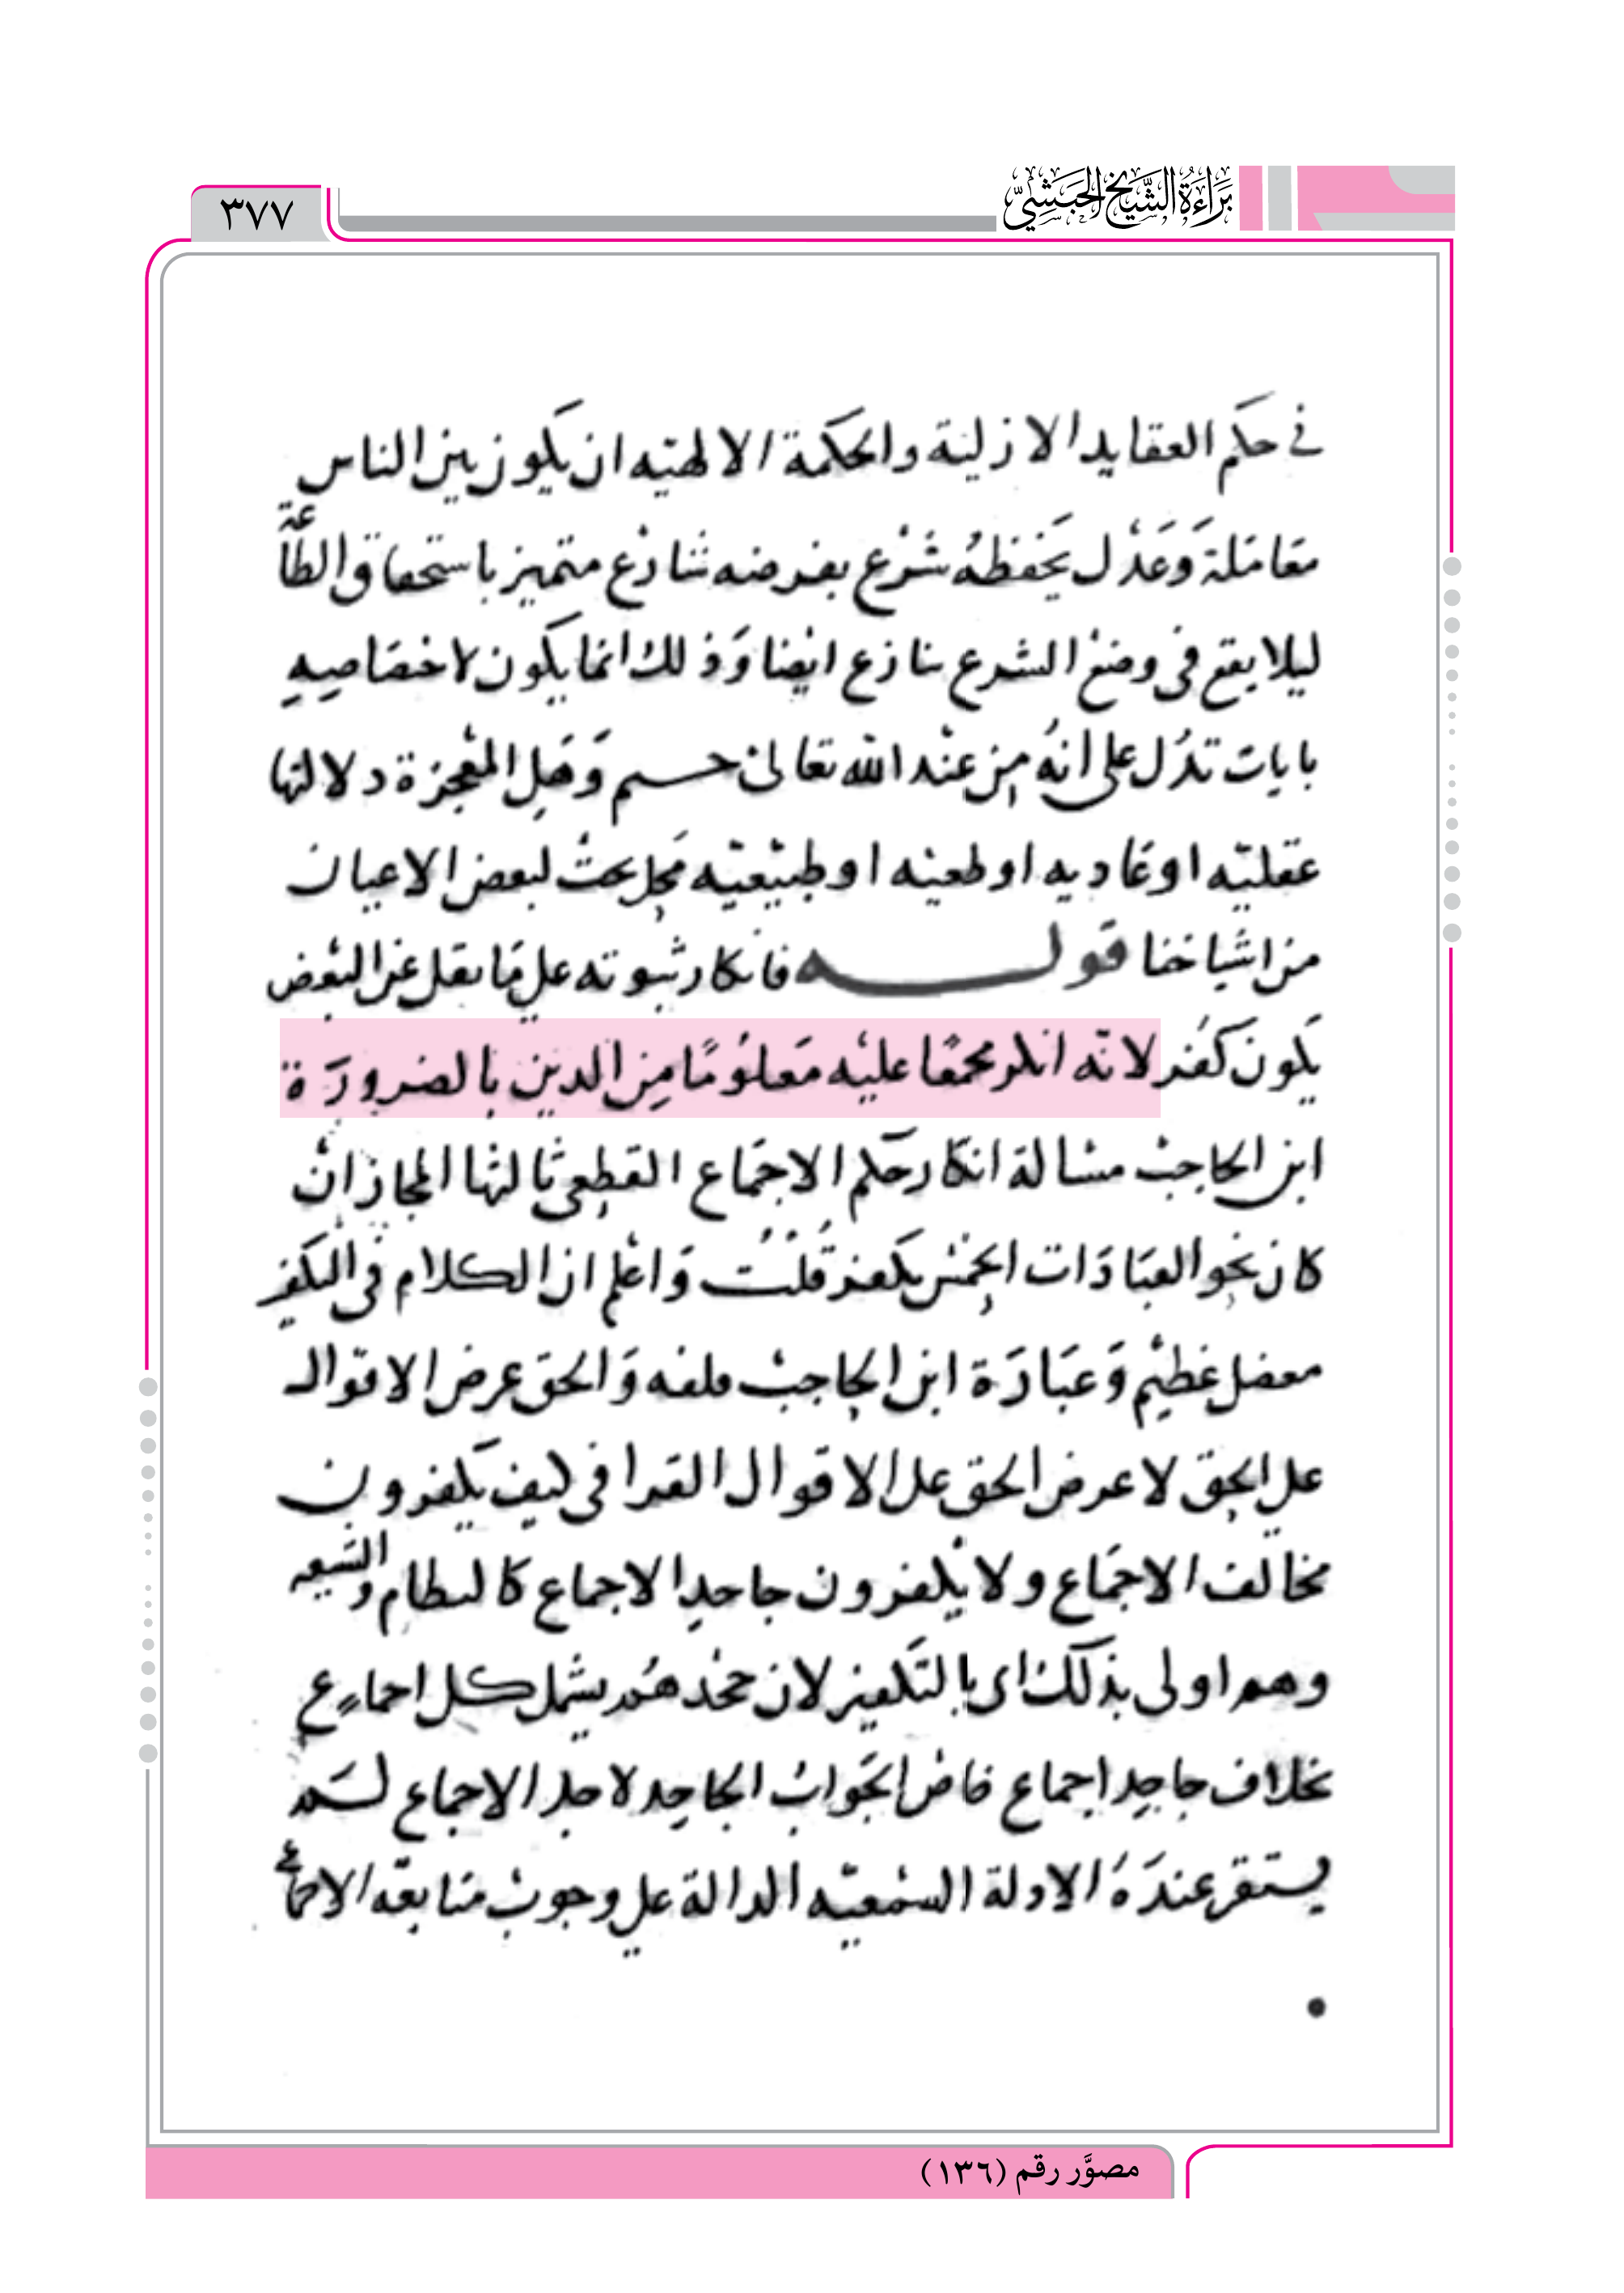 براءة الشيخ الحبشي
٣٧٧
في حكم العقايد الازلية والحكمة الالهيه ان يكون بين الناس
معَامَلة وَعَدْل يحَفظهُ شَرْع يفرضه شارع متميز باستحقاق الطاعَة
ليلا يقع فى وضع الشرع تنازع ايضا وَذلك انما يكون لاختصَاصِهِ
بايات تدُل على انهُ من عنْد الله تعَالىٰ حسم وَهَل المعْجزة دلالتها
عقليّه اوعَاديه او وطبيْعيّه مَحل بحث لبعض الاعيان
من اشيَاخنا قوله فانكار ثبوته على مَا نقل عن البعْض
يَكون كفر لانّه انكر مجمعًا عليْه مَعلوُمًا مِن الدين بالضرورَة
ابن الحاجبْ مسالة انكار حكم الاجمَاع القطعي ثالثها المختار ان
كان نحو العبَادَات الخمْس يكفر قُلْت وَاعْلم ان الكلام فى التكفير
معضل عَظيْم وَعبَارَة ابن الحاجبْ وَالحق عرض الاقوال
على الحق لا عرض الحق على الاقوال القرافى كيف يكفرون
مخالف الاجمَاع ولا يكْفرون جاحد الاجماع كالنظام والشيعه
وهم اولى بذلك اى بالتكفير لان جحْدهُم يشمل كل اجماع
بخلاف جاحد اجماع الجَوابُ الجاحِد لاصل الاجماع لم
يستقر عندَهُ الادلة السمْعيّه الدالة على وجوبْ متابعَة الاجماع
مصوَّر رقم (١٣٦)